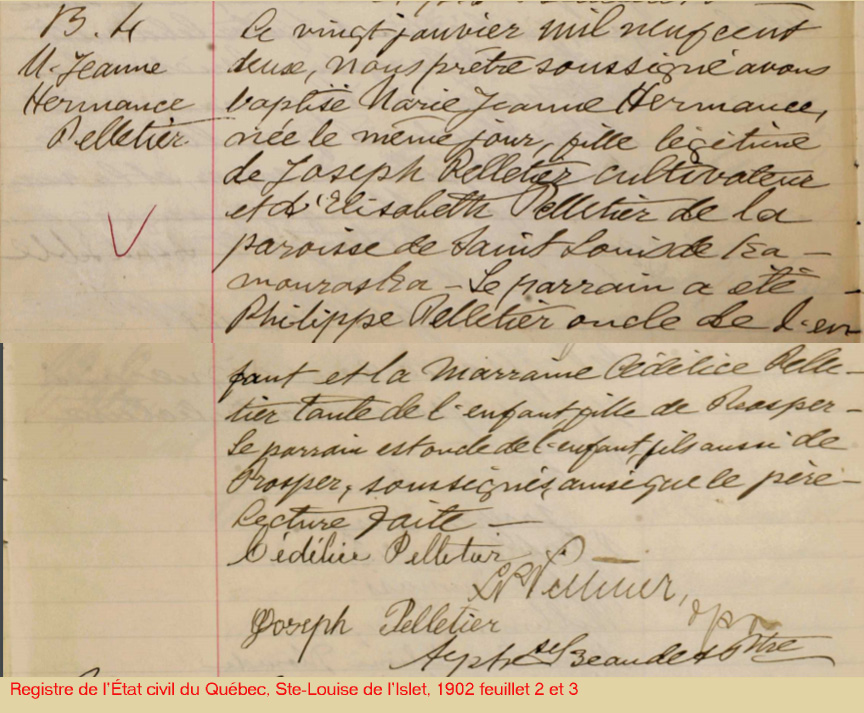 B. 4
M. Jeanne
Hermance
Pelletier
Le vingt janvier mil neuf cent
deux, Nous prêtre soussigné avons
baptisé Marie Jeanne Hermance,
née le même jour, fille légitime
de Joseph Pelletier cultivateur
et d'Elisabeth Pelletier de la
paroisse de Saint Louis de Ka-
mouraska - Le parrain a été -
Philippe Pelletier oncle de l'en
fant et la Marraine Cédélice Pelle-
tier tante de l'enfant fille de Prosper -
Le parrain est oncle de l'enfant, fils aussi de
Prosper, soussignés ainsi que le père -
Lecture faite -
Cédélice Pelletier
Pelletier,
Joseph Pelletier
Beaudet Ptre
Registre de l'État civil du Québec, Ste-Louise de l'Islet, 1902 feuillet 2 et 3